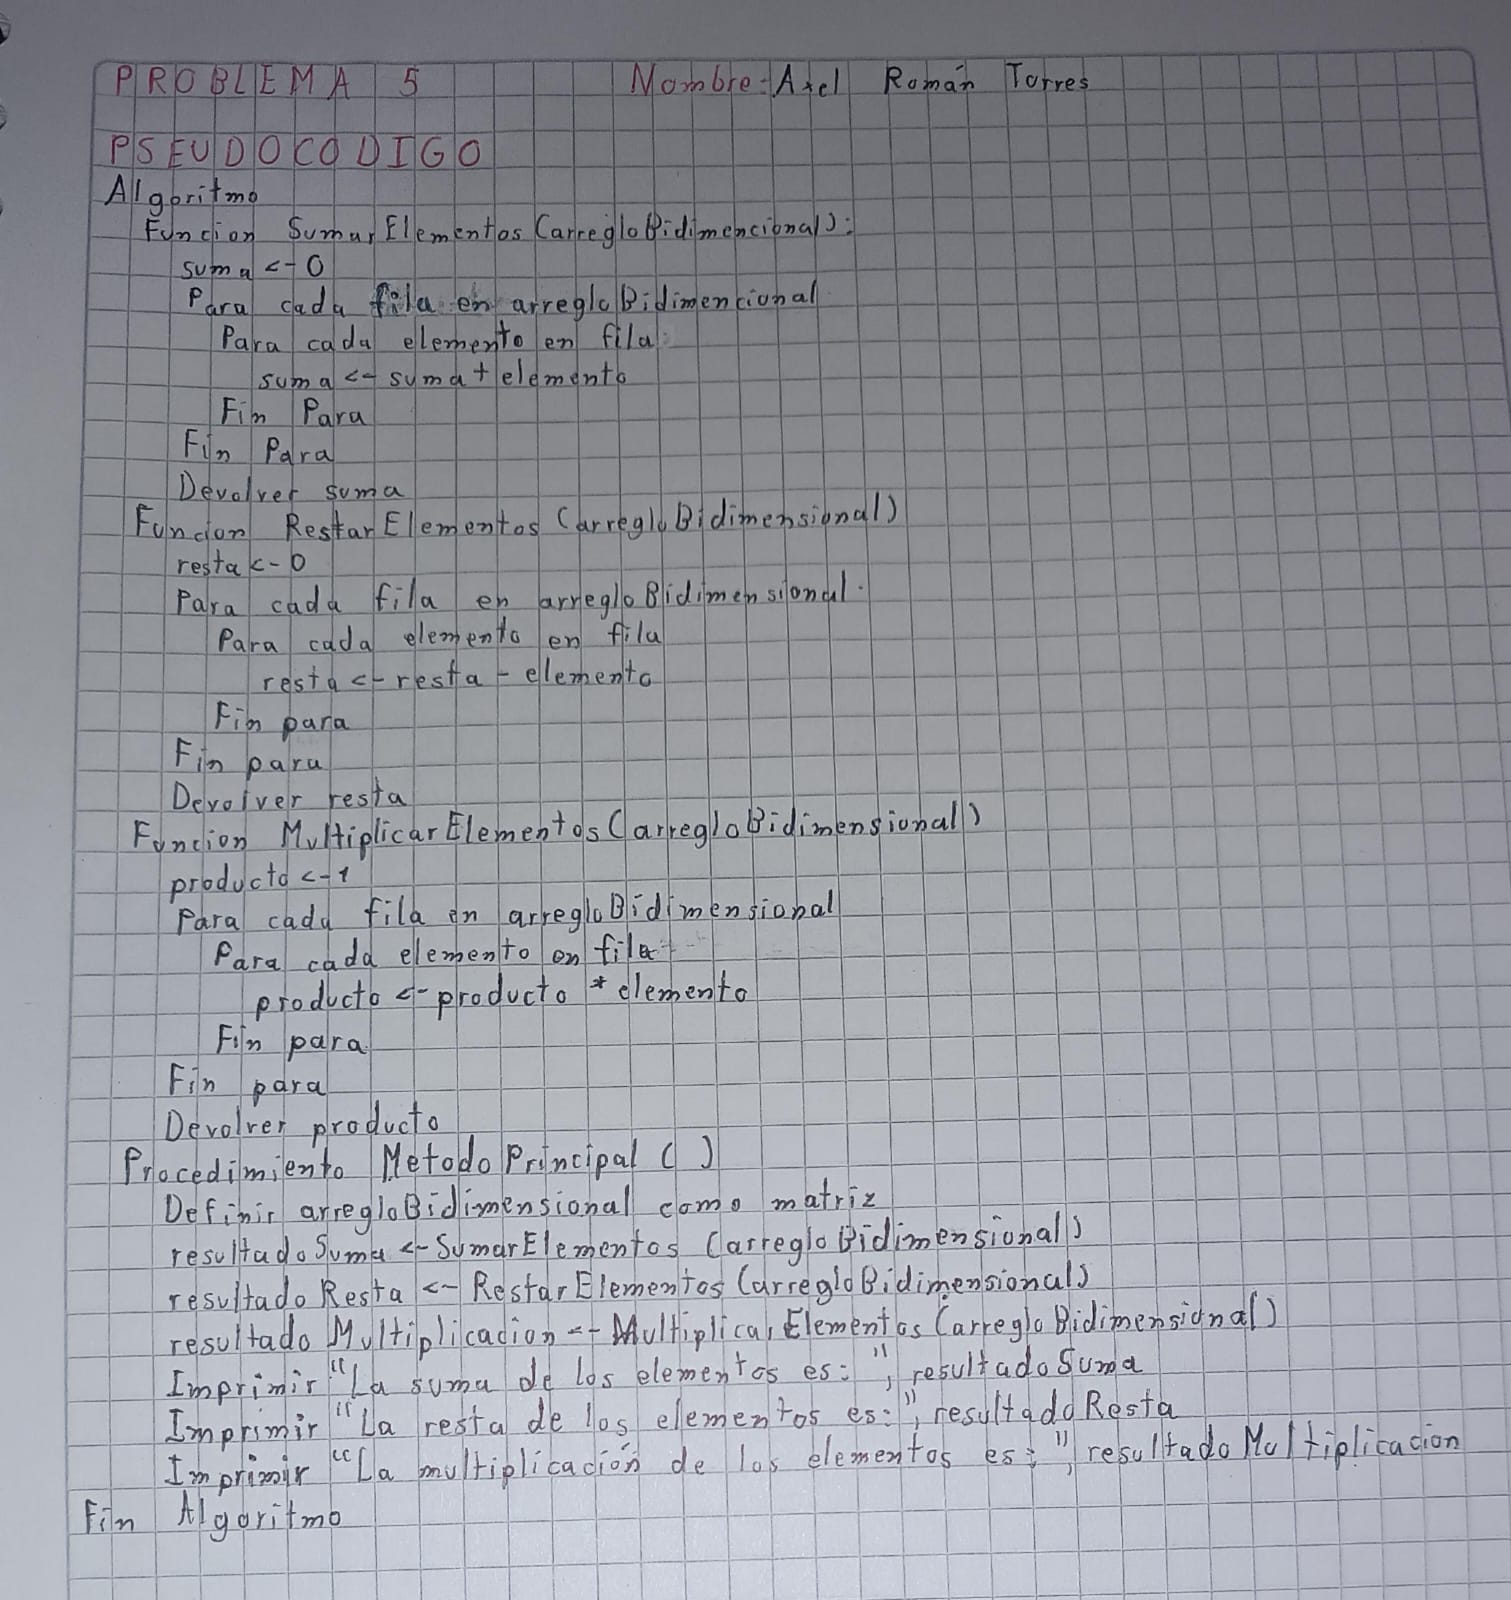 PROBLEMA 5 Nombre: Axel Román Torres
PSEUDOCODIGO
Algoritmo
Funcion SumarElementos (arregloBidimencional):
suma <- 0
Para cada fila en arregloBidimencional
Para cada elemento en fila
suma <- suma + elemento
Fin Para
Fin Para
Devolver suma
Funcion RestarElementos (arregloBidimensional)
resta <- 0
Para cada fila en arregloBidimensional
Para cada elemento en fila
resta <- resta - elemento
Fin para
Fin para
Devolver resta
Funcion MultiplicarElementos (arregloBidimensional)
producto <- 1
Para cada fila en arregloBidimensional
Para cada elemento en fila
producto <- producto * elemento
Fin para
Fin para
Devolver producto
Procedimiento MetodoPrincipal ( )
Definir arregloBidimensional como matriz
resultadoSuma <- SumarElementos (arregloBidimensional)
resultadoResta <- RestarElementos (arregloBidimensional)
resultadoMultiplicacion <- MultiplicarElementos (arregloBidimensional)
Imprimir "La suma de los elementos es: ", resultadoSuma
Imprimir "La resta de los elementos es: ", resultadoResta
Imprimir "La multiplicación de los elementos es: ", resultadoMultiplicacion
Fin Algoritmo